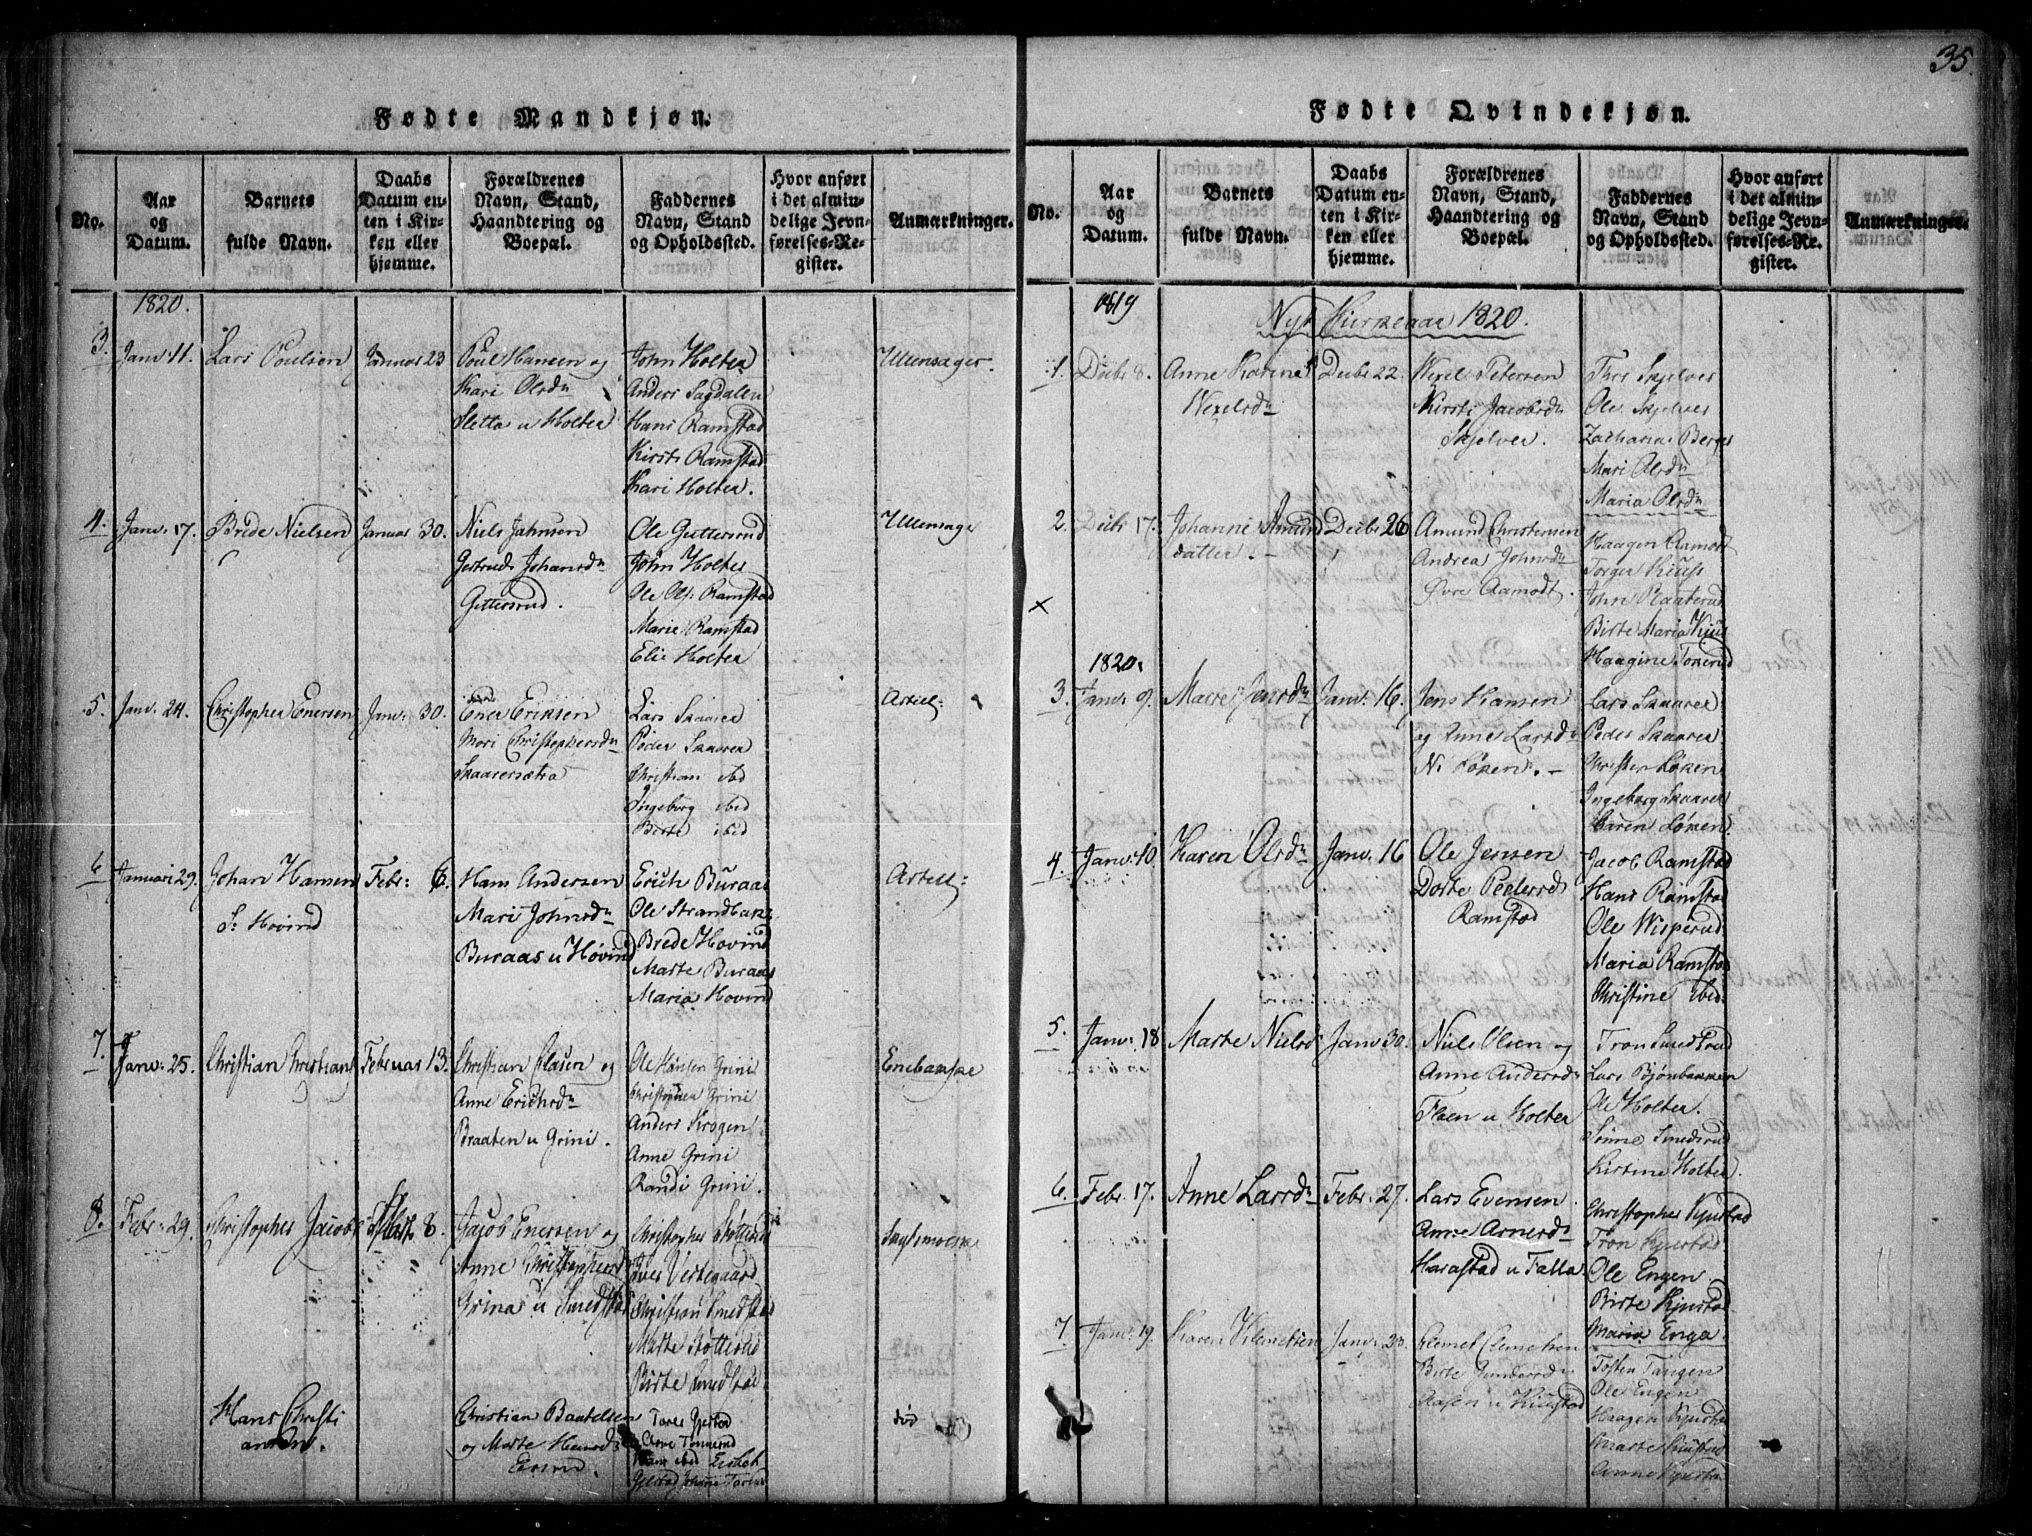 35.
Fødte Mandkjøn.
No.
Aar og Datum.
Barnets fulde Navn.
Daabs Datum enten i Kirken eller hjemme.
Forældrenes Navn, Stand, Haandtering og Boepæl.
Faddernes Navn, Stand og Opholdssted.
Hvor anført i det almindelige Jevnførelses-Register.
Anmærkninger.
1820.
3. Janv: 11. Lars Poulsen Januar 23
Poul Hansen og
Kari Olsdn
Sletta u Holter
John Holter
Anders Sagdalen
Hans Ramstad
Kirsti Ramstad
Kari Holter.
Ullensager.
4. Janv: 17. Brede Nielsen Januar 30.
Niels Jahnsen
Gertrud Johansdn
Guttersrud.
Ole Guttersrud
John Holter
Ole Ols: Ramstad
Marie Ramstad
Elie Holter
Ullensager
5. Janv. 24. Christopher Enersen Janv: 30.
Ener Eriksen
Mari Christophersdn
Skaarersætra
Lars Skaarer
Peder Skaarer
Christian ibid
Ingeborg ibid
Birte ibid
Artell:
6 Januari 29. Johan Hansen Febr: 6.
S: Hovind
Hans Andersen
Mari Johnsdn
Buraas u Høvind
Erich Buraas
Ole Strandbak
Brede Hovind
Marte Buraas
Maria Hovind
Artell:
7. Janv: 25. Christian Christians Februar 13.
Christian Clasen og
Anne Erichsdn
Braaten u Grini.
Ole Hansen Grini
Christopher Grini
Anders Krogen
Anne Grini
Randi Grini.
Enebakke
8. Febr: 29. Christopher Jacobs 8.
Jacob Enersen og
Anne Christophersd
Grina u Smedstad
Christopher Stottrud
Iver Vestegaard
Christian Smedstad
Marte Stottrud
Birte Smedstad
Hans Christi
ansen.
Christian Baatelsen
og Marte Hansd
Tores Gjestad
død
Fødte Qvindekjøn.
No.
Aar og Datum.
Barnets fulde Navn.
Daabs Datum enten i Kirken eller hjemme.
Forældrenes Navn, Stand, Haandtering og Boepæl.
Faddernes Navn, Stand og Opholdssted.
Hvor anført i det almindelige Jevnførelses-Re. gister.
Anmærkninger.
1819
Nyt Kirkeaar 1820.
1. Decbr 8. Anne Karine Decbr 22.
Wexelsdn
Wexel Petersen
Kirsti Jacobsdn
Skjelver.
Thor Skjelver
Ole Skjelver
Zacharias Berger
Mari Olsdn
Maria Olsdn
2. Decbr 17. Johanne Amund Decbr 26
datter.
Amund Christensen
Andrea Johnsdn
Øvre Aamodt.
Haagen Aamodt
Torger Kius
John Raaterud
Birte Maria Kius
Haagine Tokerud
1820.
3. Janv: 9. Maren Jensdn Janv: 16.
Jens Hansen
og Anne Larsdn
N: Løken.
Lars Skaarer
Peder Skaarer
Christen Løken
Ingeborg Skaarer
Karen Løken.
4. Janv: 10 Karen Olsdn Janv: 16
Ole Jensen
Dorte Pedersd
Ramstad
Jacob Ramstad
Hans Ramstad
Ole Wisperud
Maria Ramstad
Christine Ibid
5. Janv: 18 Marte Nielsd Janv 30.
Niels Olsen og
Anne Andersdn
Flaen u Holter
Tron Smedsrud
Lars Bjønbakken
Ole Holter.
Sønne Smedsrud
Kirstine Holter.
6. Febr. 17. Anne Larsdn Febr. 27.
Lars Evensen
Anne Arnesdn
Harastad u Falla
Christopher Kjustad
Tron Kjustad
Ole Engen
Birte Kjustad
Maria Enga
7 Janv: 19. Karen Klemetsen Janv: 23.
Clemet Clemetsen
Birte Gundersdn
Aasen u Kiustad
Tosten Tangen
Ole Engen
Haagen Kjustad
Marte Kjustad
Anne Kjustad